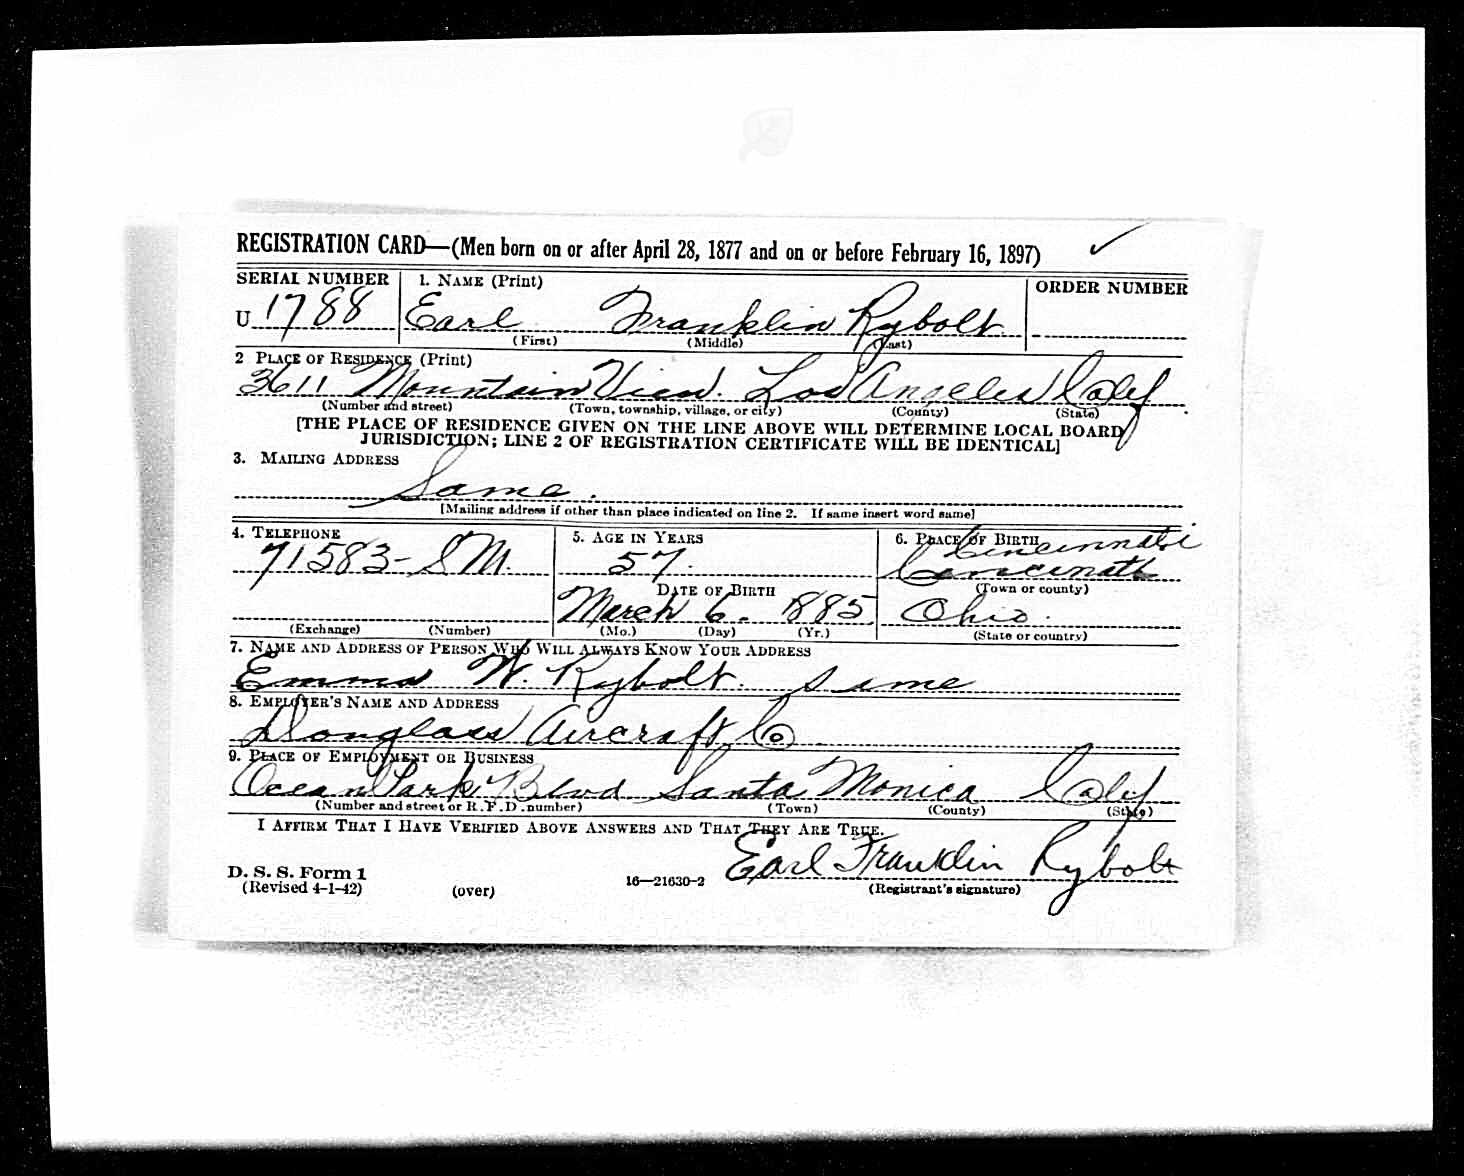 REGISTRATION CARD—(Men born on or after April 28, 1877 and on or before February 16, 1897)
SERIAL NUMBER 1. NAME (Print) ORDER NUMBER
U 1788 Earl Franklin Rybolt
(First) (Middle) (Last)
2 PLACE OF RESIDENCE (Print)
3611 Mountain View. Los Angeles Calif
(Number and street) (Town, township, village, or city) (County) (State)
[THE PLACE OF RESIDENCE GIVEN ON THE LINE ABOVE WILL DETERMINE LOCAL BOARD
JURISDICTION; LINE 2 OF REGISTRATION CERTIFICATE WILL BE IDENTICAL]
3. MAILING ADDRESS
Same.
[Mailing address if other than place indicated on line 2. If same insert word same]
4. TELEPHONE 5. AGE IN YEARS 6. PLACE OF BIRTH
Cincinnati
71583-SM. 57. Cincinati
DATE OF BIRTH (Town or county)
March 6. 1885 Ohio.
(Exchange) (Number) (Mo.) (Day) (Yr.) (State or country)
7. NAME AND ADDRESS OF PERSON WHO WILL ALWAYS KNOW YOUR ADDRESS
Emma W. Rybolt. Same
8. EMPLOYER'S NAME AND ADDRESS
Douglass Aircraft Co
9. PLACE OF EMPLOYMENT OR BUSINESS
Ocean Park Blvd Santa Monica Calif
(Number and street or R. F. D. number) (Town) (County) (State)
I AFFIRM THAT I HAVE VERIFIED ABOVE ANSWERS AND THAT THEY ARE TRUE.
Earl Franklin Rybolt
D. S. S. Form 1
(Revised 4-1-42) (over) 16—21630-2 (Registrant's signature)